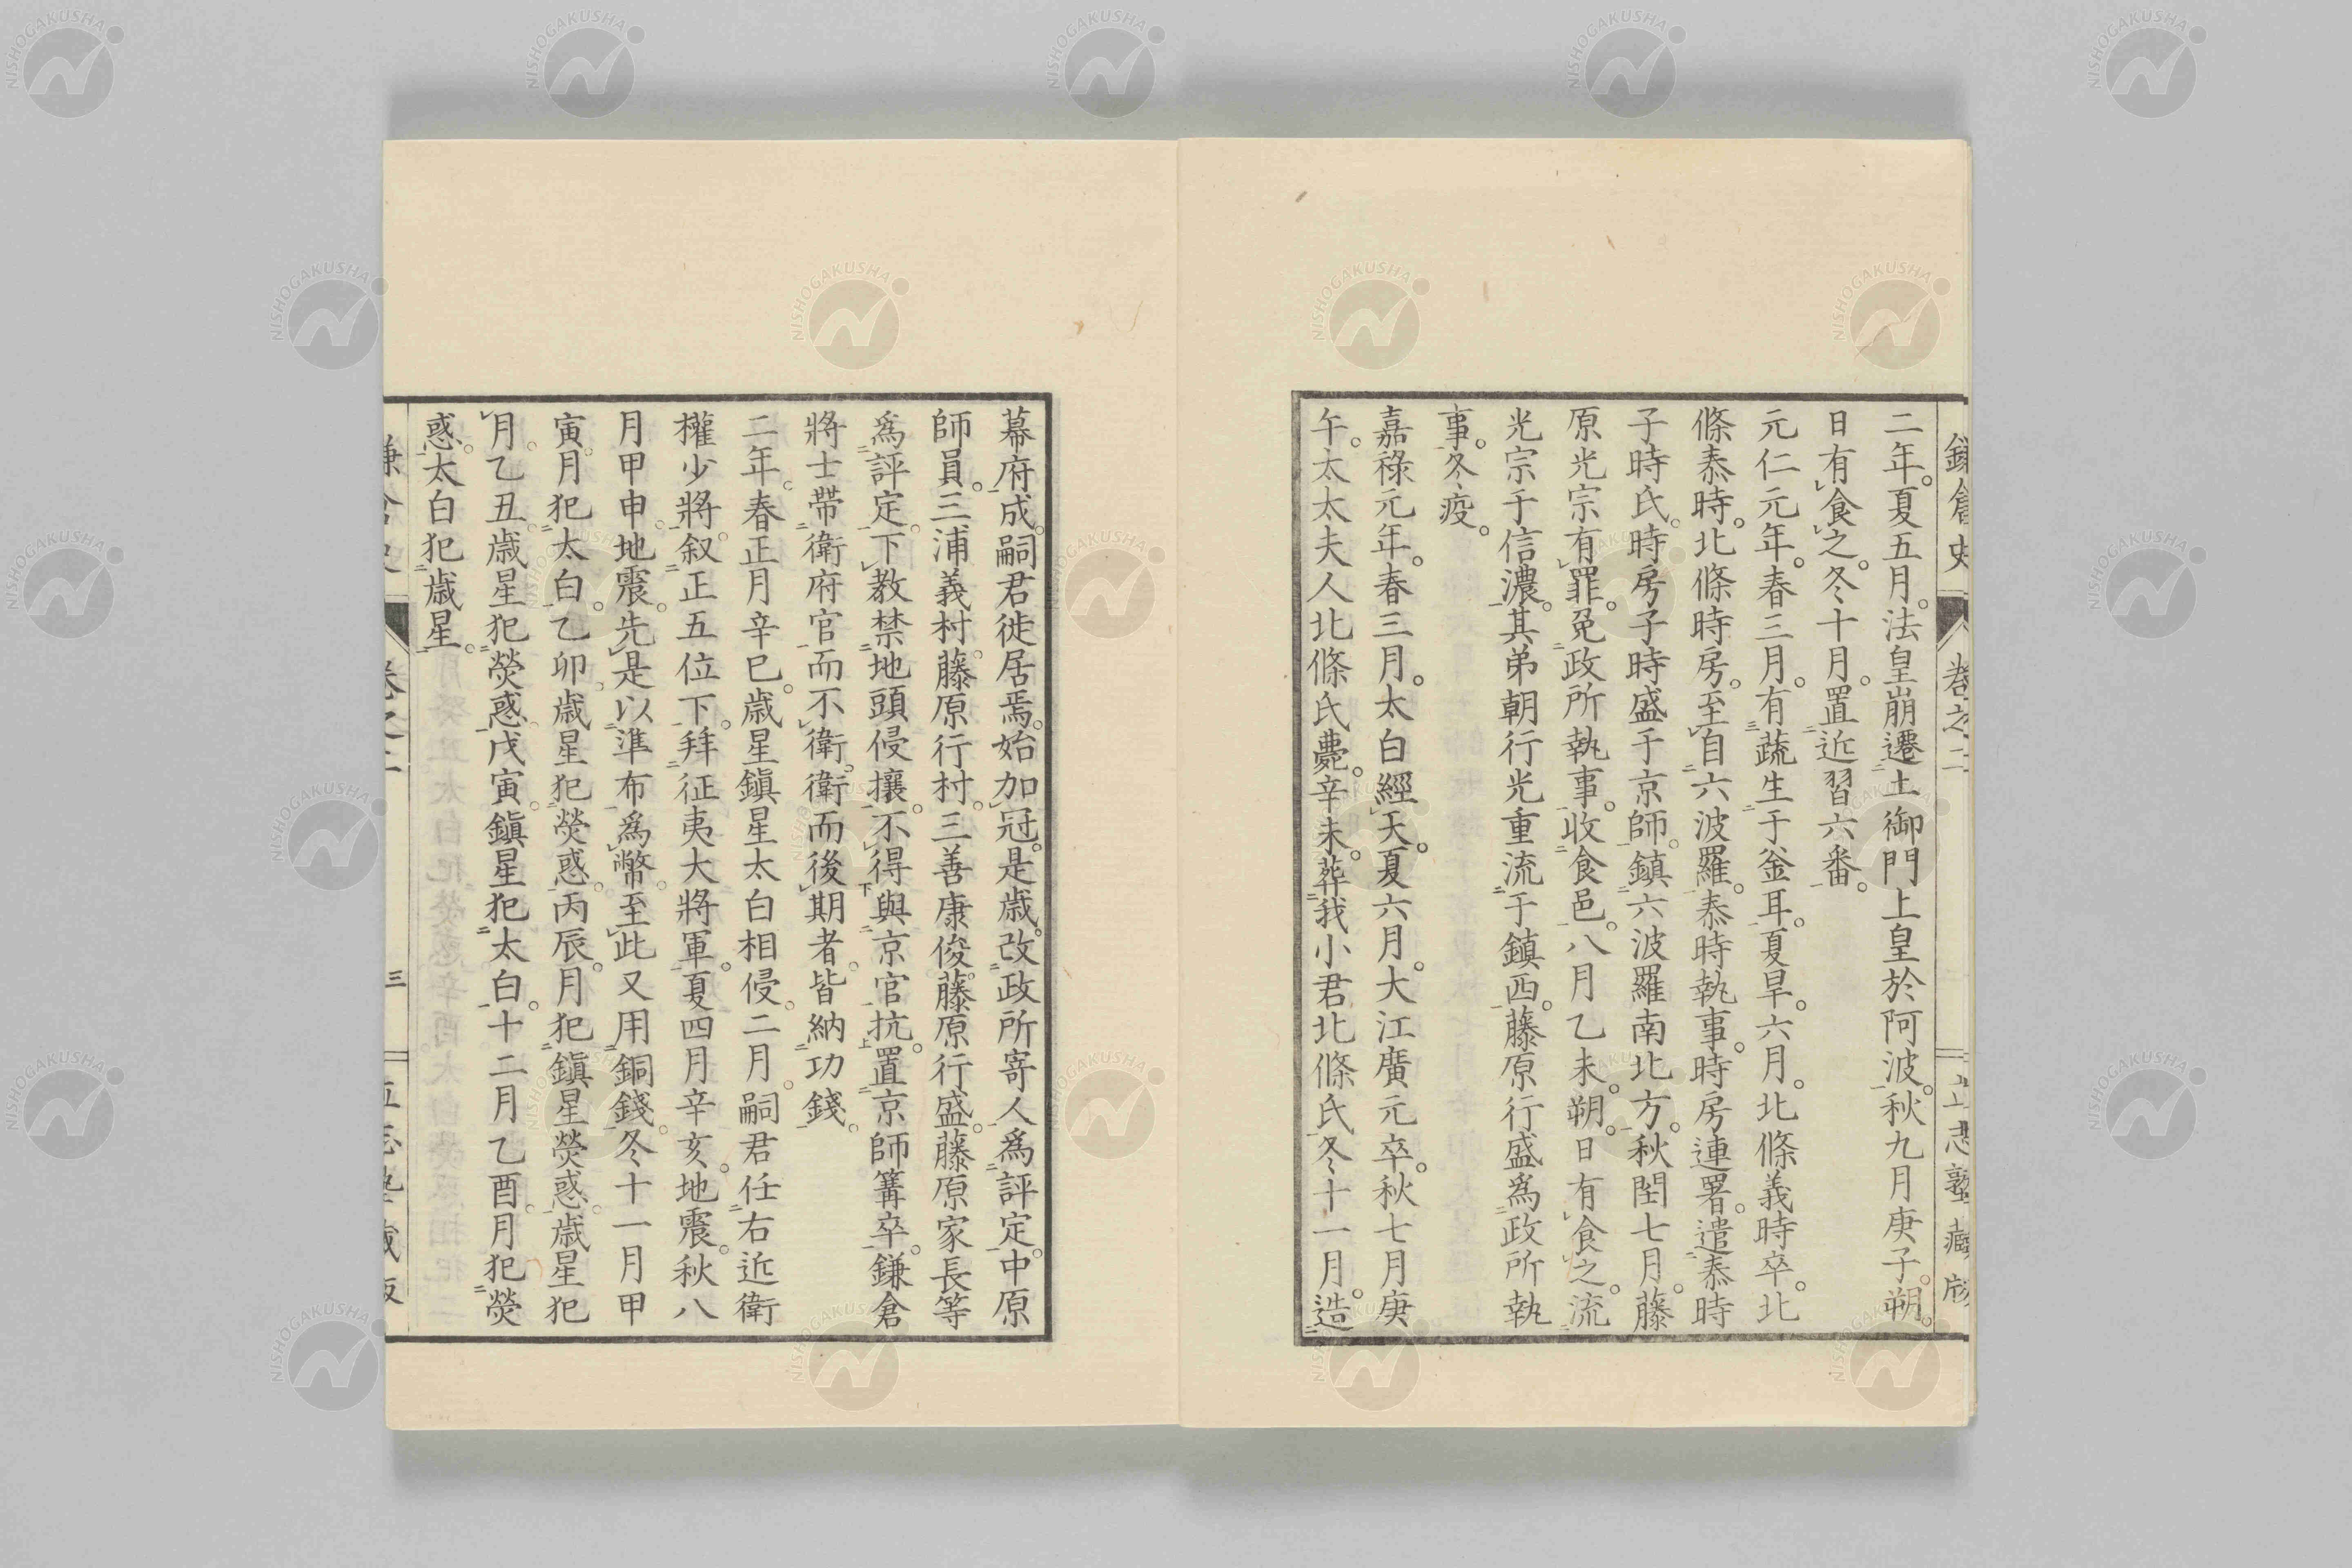 鎌倉史 卷之二 立志塾藏版
二年。夏五月。法皇崩遷土御門上皇於阿波。秋九月庚子朔。
日有食之。冬十月。置近習六番。
元仁元年。春三月。有蔬生于釜耳。夏旱。六月。北條義時卒。北
條泰時。北條時房。至自六波羅。泰時執事。時房連署。遣泰時
子時氏。時房子時盛于京師。鎮六波羅南北方。秋閏七月。藤
原光宗有罪。免政所執事。收食邑。八月乙未。朔。日有食之。流
光宗于信濃。其弟朝行光重流于鎮西。藤原行盛爲政所執
事。冬疫。
嘉祿元年。春三月。太白經天。夏六月。大江廣元卒。秋七月庚
午。太太夫人北條氏薨。辛未。葬我小君北條氏。冬十一月。造
幕府成。嗣君徙居焉。始加冠。是歲。改政所寄人爲評定。中原
師員。三浦義村。藤原行村。三善康俊。藤原行盛。藤原家長等
爲評定。下教禁地頭侵攘。不得與京官抗。置京師篝卒。鎌倉
將士帶衛府官而不衛。衛而後期者。皆納功錢。
二年。春正月辛巳。歲星鎭星太白相侵。二月。嗣君任右近衛
權少將。叙正五位下。拜征夷大將軍。夏四月辛亥。地震。秋八
月甲申。地震。先是以準布爲幣。至此又用銅錢。冬十一月甲
寅。月犯太白。乙卯。歲星犯熒惑。丙辰。月犯鎭星熒惑。歲星犯
月。乙丑。歲星犯熒惑。戊寅。鎭星犯太白。十二月乙酉。月犯熒
惑。太白犯歲星。
三